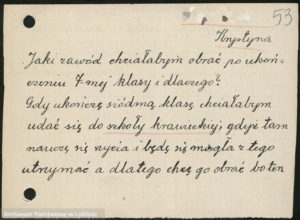 53
Krystyna
Jaki zawód chciałabym obrać po ukoń-
czeniu 7-mej klasy i dlaczego?
Gdy ukończę siódmą klasę chciałabym
udać się do szkoły krawieckiej, gdyż tam
nauczę się szycia i będę się mogła z tego
utrzymać a dlatego chcę go obrać bo ten
Archiwum Państwowe w Lublinie